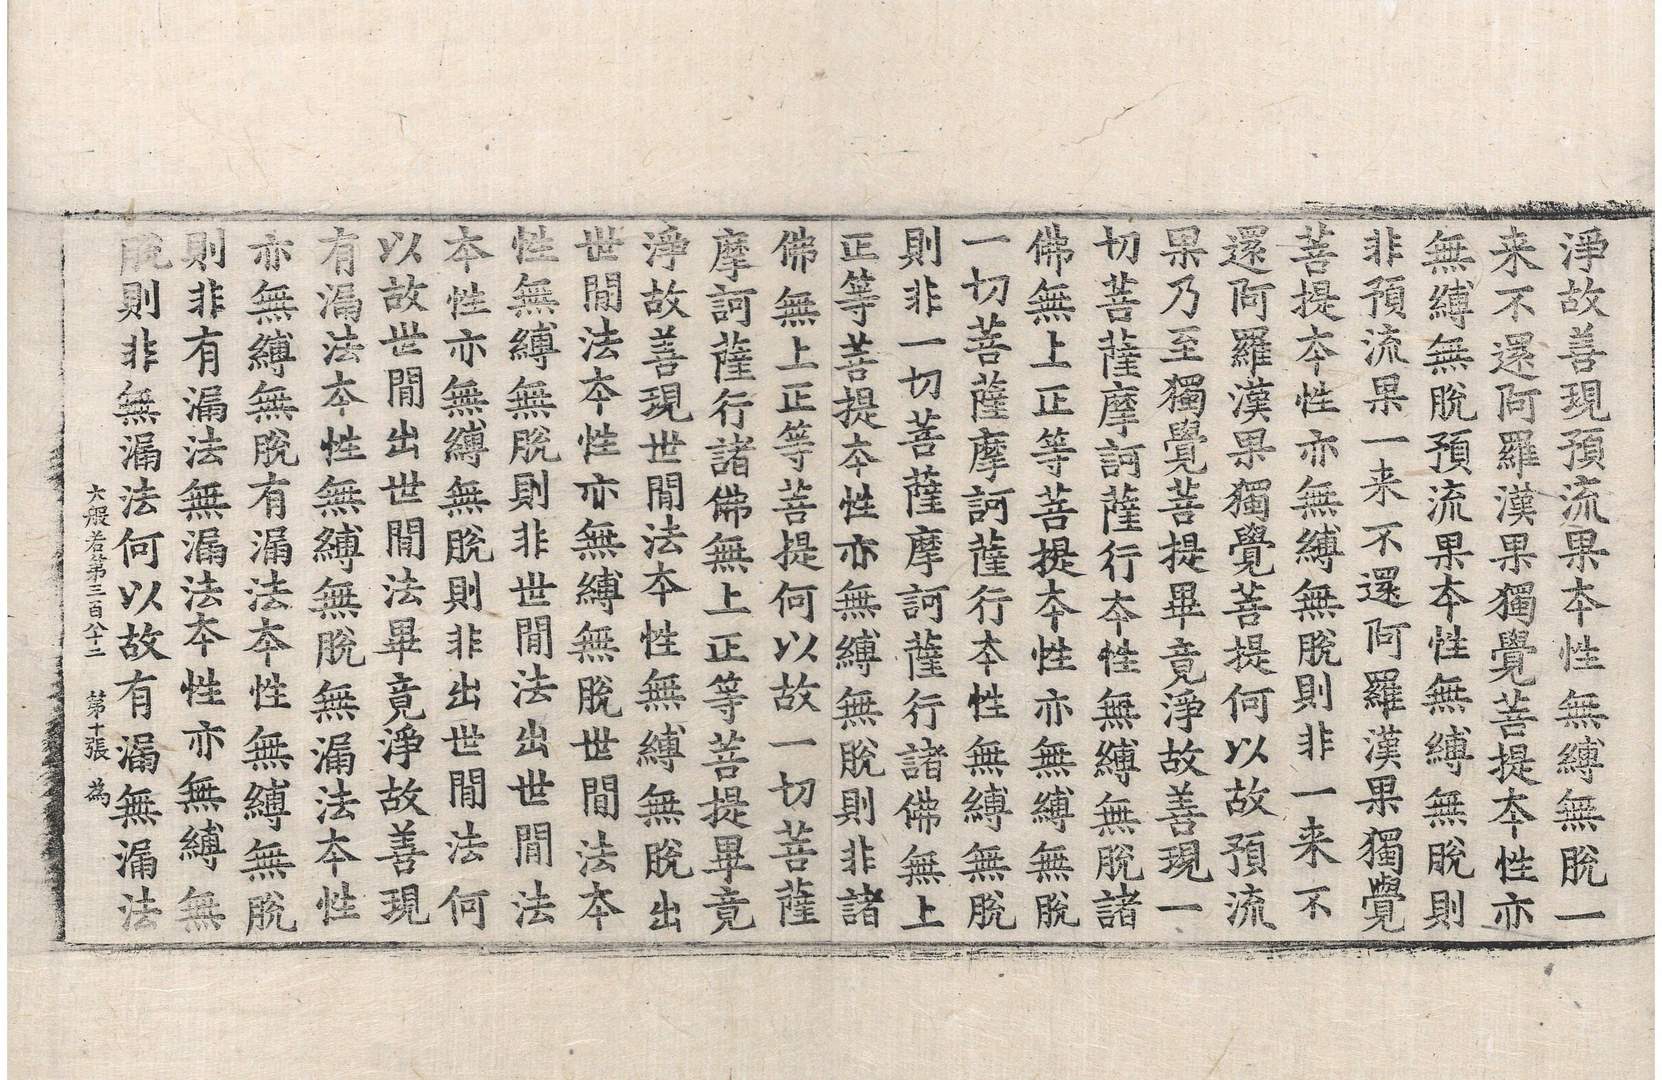 淨故善現預流果本性無縛無脫一
来不還阿羅漢果獨覺菩提本性亦
無縛無脫預流果本性無縛無脫則
非預流果一来不還阿羅漢果獨覺
菩提本性亦無縛無脫則非一来不
還阿羅漢果獨覺菩提何以故預流
果乃至獨覺菩提畢竟淨故善現一
切菩薩摩訶薩行本性無縛無脫諸
佛無上正等菩提本性亦無縛無脫
一切菩薩摩訶薩行本性無縛無脫
則非一切菩薩摩訶薩行諸佛無上
正等菩提本性亦無縛無脫則非諸
佛無上正等菩提何以故一切菩薩
摩訶薩行諸佛無上正等菩提畢竟
淨故善現世間法本性無縛無脫出
世間法本性亦無縛無脫世間法本
性無縛無脫則非世間法出世間法
本性亦無縛無脫則非出世間法何
以故世間出世間法畢竟淨故善現
有漏法本性無縛無脫無漏法本性
亦無縛無脫有漏法本性無縛無脫
則非有漏法無漏法本性亦無縛無
脫則非無漏法何以故有漏無漏法
大般若第三百八十二 第十張 為